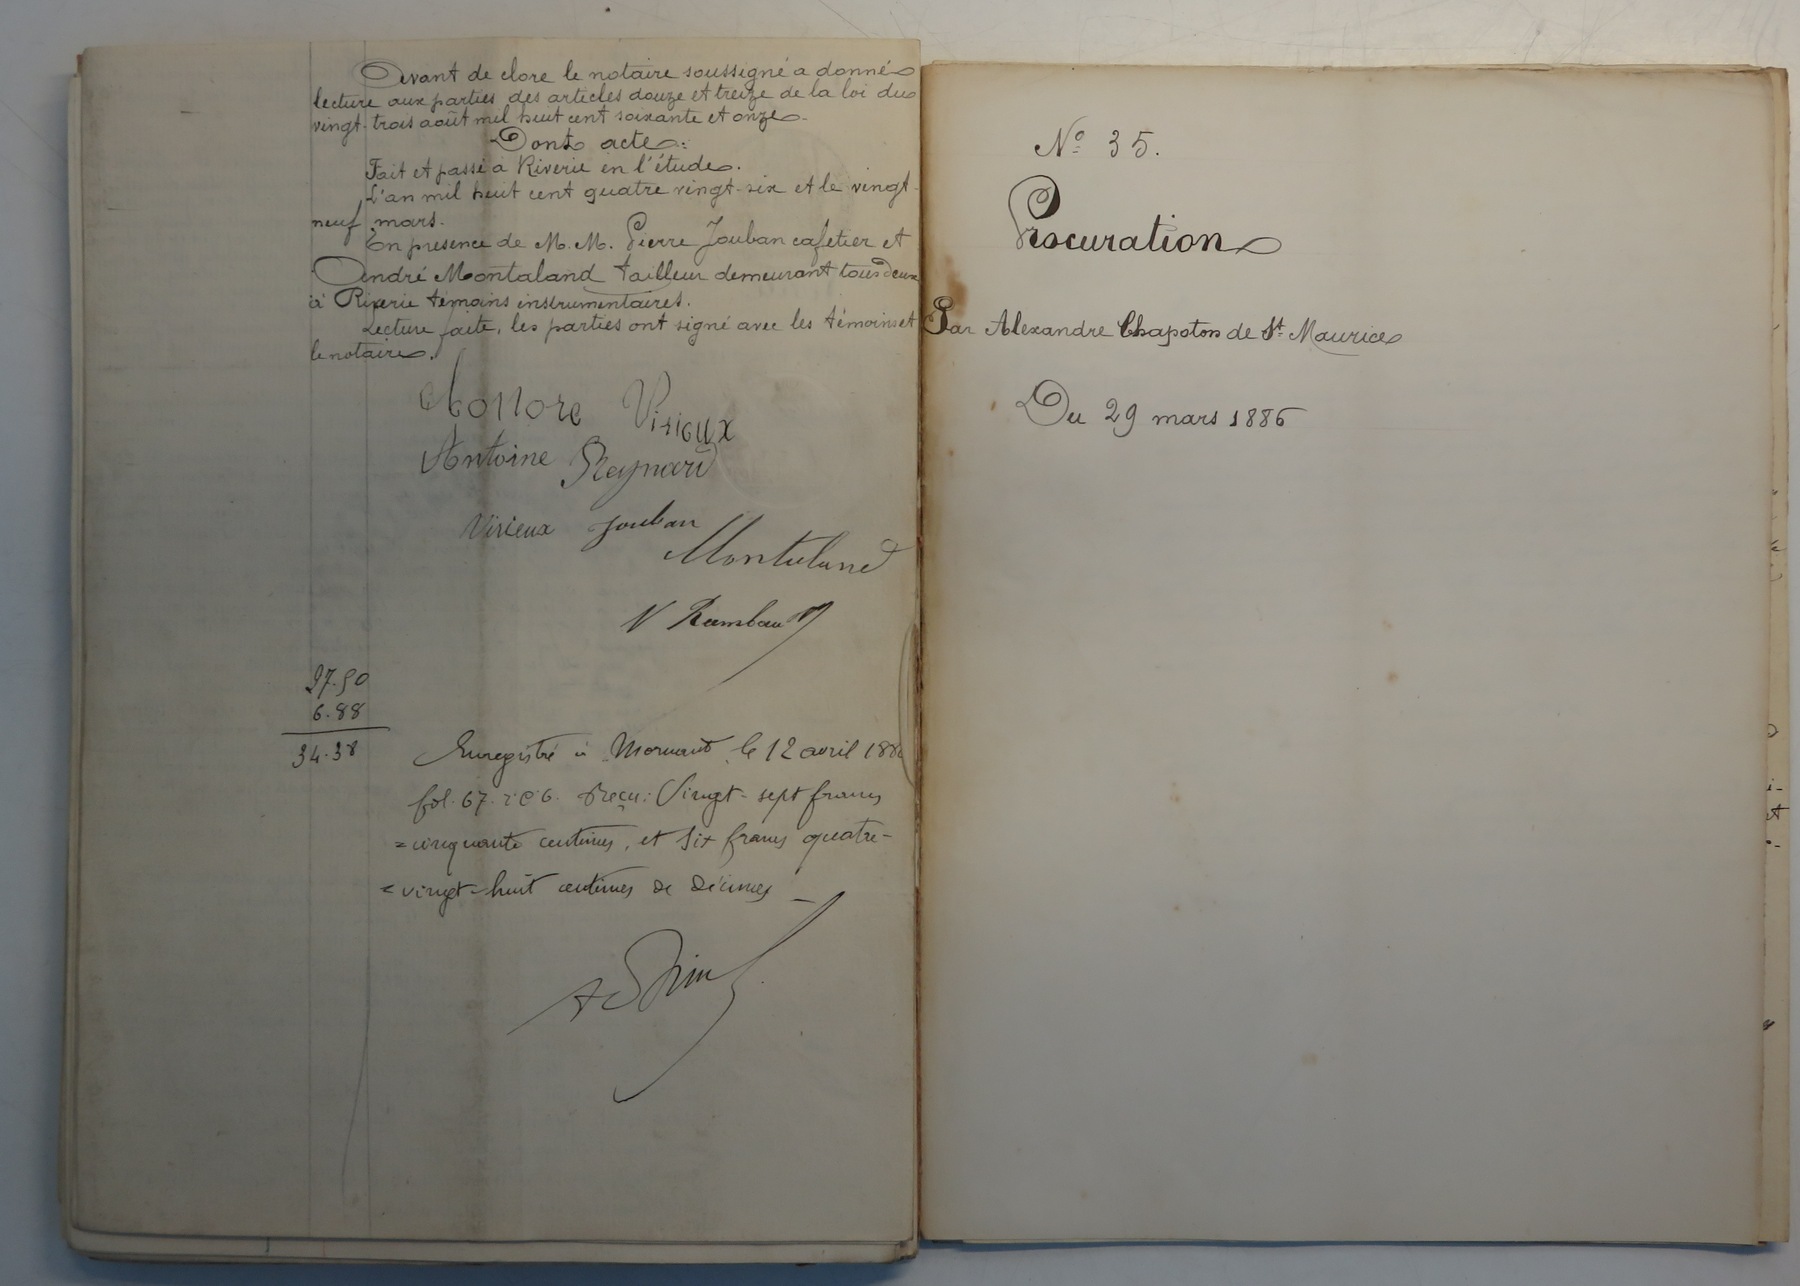 Avant de clore le notaire soussigné a donné
lecture aux parties des articles douze et treize de la loi du
vingt-trois août mil huit cent soixante et onze.
Dont acte:
Fait et passé à Riverie en l'étude.
L'an mil huit cent quatre vingt-six et le vingt-
neuf mars.
En présence de M.M. Pierre Jouban cafetier et
André Montaland tailleur demeurant tous deux
à Riverie témoins instrumentaires.
Lecture faite, les parties ont signé avec les témoins et
le notaire.
Virieux
Antoine Reynard
Virieux Jouban
Montaland
27.50
6.88
34.38
Enregistré à Mornant le 12 avril 188
fol. 67. Reçu: Vingt-sept francs
=cinquante centimes, et six francs quatre-
=vingt-huit centimes de décimes
No 35.
Procuration
Par Alexandre Chapoton de St Maurice
Du 29 mars 1886